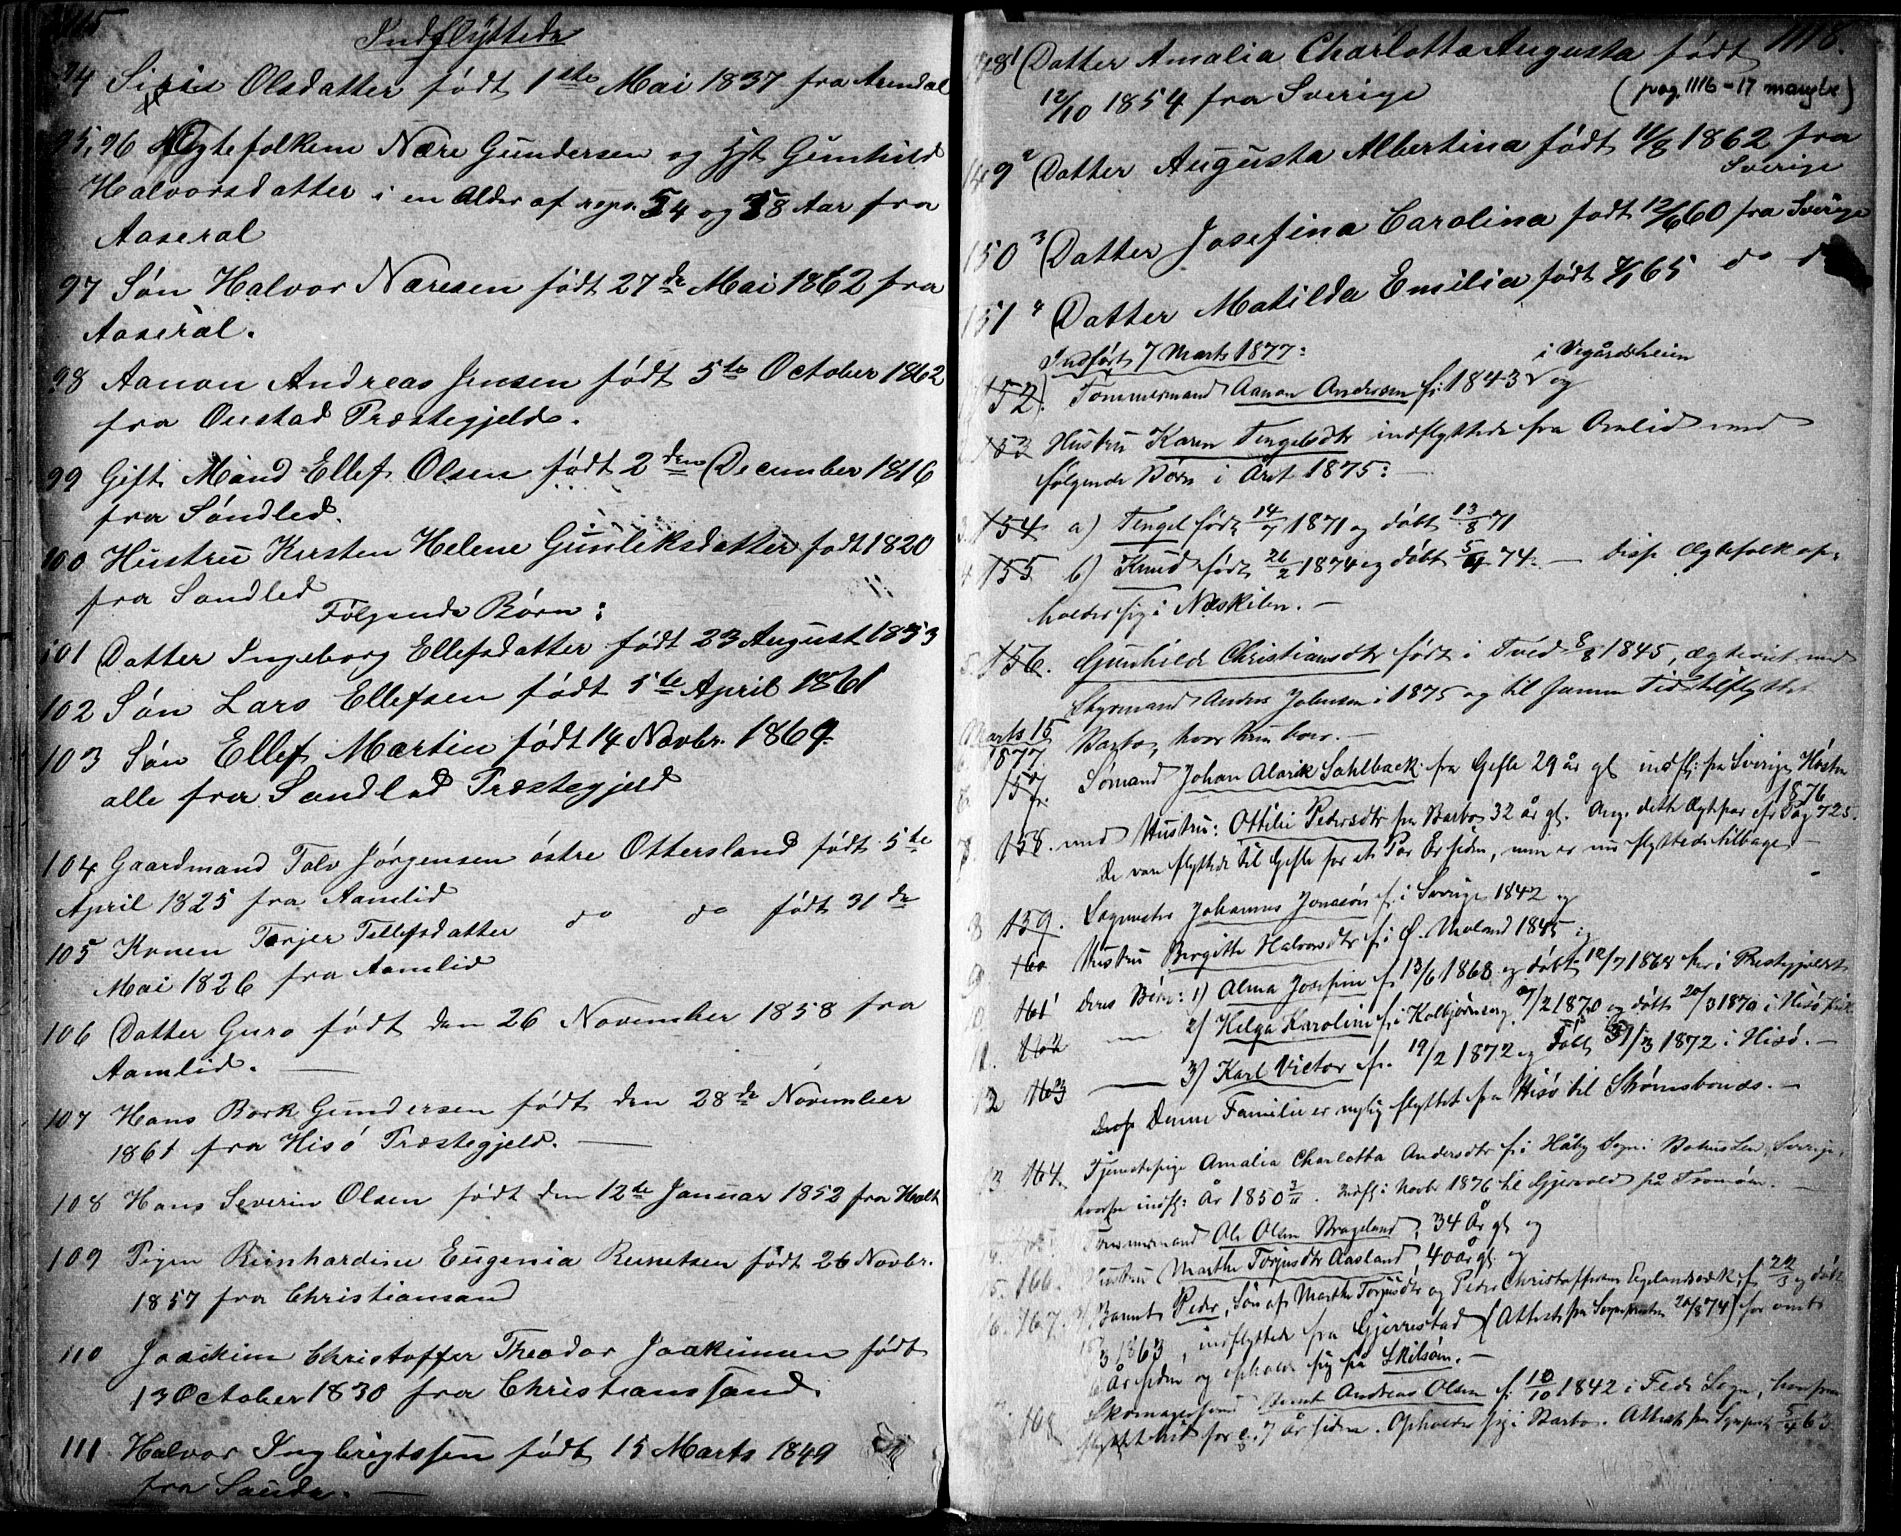 1115
Indflyttede
94 Olsdatter født 1ste Mai 1837 fra Arendal
95, 96 Ægtefolkene Nære Gundersen og Gunhild
Halvorsdatter i en Alder af resp. 54 og 38 Aar fra
Aaseral
97 Søn Halvor Næresen født 27de Mai 1862 fra
Aaseral.
98 Aanon Andreas Jensen født 5te October 1862
fra Præstegjeld.
99 Gift Mand Ellef Olsen født 2den December 1816
fra Søndled.
100 Hustru Kirsten Helene Gunleksdatter født 1820
fra Søndled
Følgende Børn:
101 Datter Ingeborg Ellefsdatter født 23 August 1853
102 Søn Lars Ellefsen født 5te April 1861
103 Søn Ellef Martin født 14 Novbr. 1869.
alle fra Søndled Præstegjeld
104 Gaardmand Talv Jørgensen østre Ottersland født 5te
April 1825 fra Aamlid
105 Konen Tørjer Tellefsdatter do do født 31de
Mai 1826 fra Aamlid
106 Datter Guro født den 26 November 1858 fra
Aamlid.
107 Hans Bork Gundersen født den 28de November
1861 fra Hisø Præstegjeld.
108 Hans Severin Olsen født den 12te Januar 1852 fra Holt
109 Pigen Reinhardine Eugenia født 26 Novbr.
1857 fra Christiansand
110 Joackim Christoffer Theodor født
13 October 1830 fra Christianssand.
111 Halvor Ingbrigtssen født 15 Marts 1849
fra Saude.
1118.
148 1 Datter Amalia Charlotta Augusta født
12/10 1854 fra Sverige
(pag. 1116-17 mangler)
149 2 Datter Augusta Albertina født 11/8 1862 fra
Sverige
150 3 Datter Josefina Carolina født 12/6 60 fra Sverige
151 4 Datter Matilda Emilia født 65 do
Indført 7 Marts 1877:
i Vegårdsheien
152). Tømmermand Aanon Andersen f. 1843 og
153 Hustru Karen Tengelsdtr indflyttede fra Omlid med
følgende Børn i Året 1875:
3. 154 a) Tengel født 14/7 1871 og døbt 13/8 71
4 155 b) Knud født 26/2 1874 og døbt 5/4 74. — disse Ægtefolk op-
holder sig i Næskilen. —
5. 156. Gunhilde Christiansdtr født i Tved 8/8 1845, ægteviet med
Styrmand Anders Johnsen i 1875 og til samme Tid tilflyttet
Barbo, hvor hun boer. —
Marts 15
1877
6. 157. Sømand Johan Alarik Sahlback fra Gefle 29 år gl. indfl. fra Sverige Høsten
1876
7. 158. med Hustru: Ottilie Pedersdtr fra Barbo 32 år gl. Ang. dette Ægtepar cfr Pag 725.
De vare flyttede til Gefle for et Par År siden, men er nu flyttede tilbage. —
8 159. Johannes Jonasøn f. i Sverige 1842 og
9. 160 Hustru Birgitte Halvorsdtr f. i Ø. Moland 1845 og
10. 161 deres Børn: 1) Alma Josefine f. 13/6 1868 og døbt 12/7 1868 her i Præstegjeldet
11. 162 2) Helga Karoline f. i Kolbjørnsvig 1870 og døbt 20/3 1870 i Hisø
12 163 3) Karl Victor f. 19/2 1872 og døbt 31/3 1872 i Hisø. —
Denne Familie er nylig flyttet fra Hisø til Strømsbonæs. —
13 164. Tjenestepige Amalia Charlotta Andersdtr f. i Håby Sogn i Bohuslen, Sverige,
År 1850. Indfl. i Novbr 1876 til Gjervold på Tromøen. —
Tømmermand Ole Olsen Brageland, 34 År gl. og
166. Hustru Marthe Torjusdtr Aasland, 40 år gl. og
167. Barnet Peder, Søn af Marthe Torjusdtr og Peder Christoffersen Egelandsbæk f. 22/3 og døbt
1863, indflyttede fra Gjerrestad (Attest fra Sognepresten 20/8 74) for omtr
6 År siden og opholder sig på Skilsøen. —
168 Andreas Olsen f. 10/10 1842 i Fede Sogn,
flyttet hid for c. 7 år siden. Opholder sig i Barbo. Attest fra Sognepr. 5/4 63.